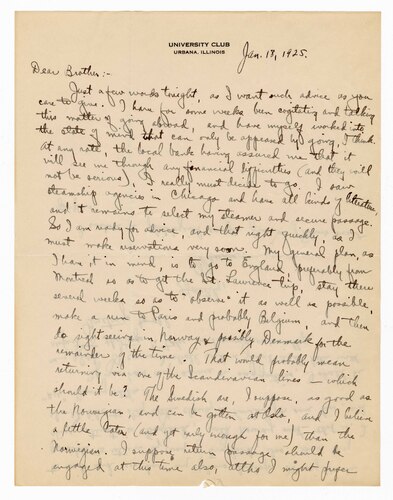 UNIVERSITY CLUB
URBANA, ILLINOIS
Jan. 18, 1925.
Dear Brother:-
Just a few words tonight, as I want such advice as you
care to give. I have for some weeks been cogitating and talking
this matter of going abroad, and have myself worked into
the state of mind that can only be appeased by going, I think.
At any rate, the local bank having assured me that it
will see me through any financial difficulties (and they will
not be serious), I really must decide to go. I saw
steamship agencies in Chicago and have all kinds of literature,
and it remains to select my steamer and secure passage.
So I am ready for advice, and that right quickly, as I
must make reservations very soon. My general plan, as
I have it in mind, is to go to England, preferably from
Montreal so as to get the St. Lawrence trip, stay there
several weeks so as to "observe" it as well as possible,
make a run to Paris and probably Belgium, and then
do sightseeing in Norway & possibly Denmark for the
remainder of the time. That would probably mean
returning via one of the Scandinavian lines — which
should it be? The Swedish as, I suppose, as good as
the Norwegian, and can be gotten at Oslo and I believe
a little later (and yet early enough for me) than the
Norwegian. I suppose return passage should be
engaged at this time also, altho I might prefer